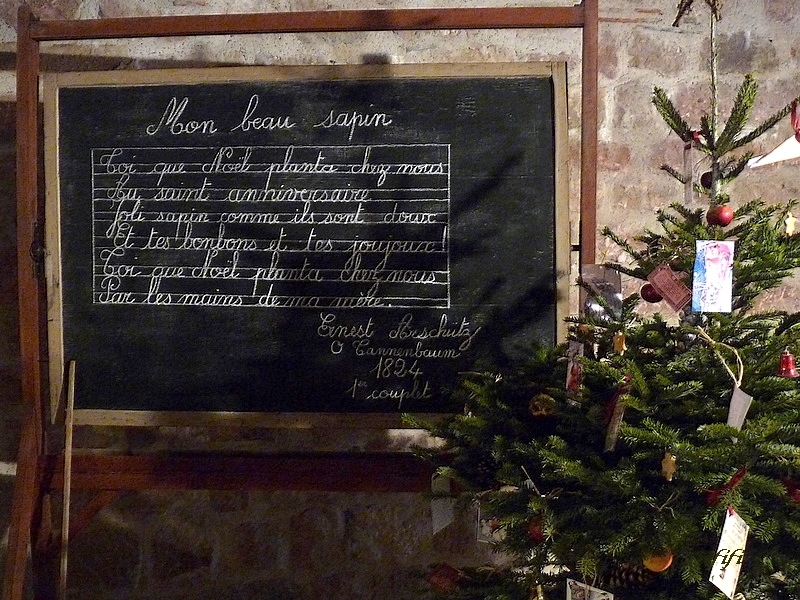 Mon beau sapin
Toi que Noël planta chez nous
Au saint anniversaire
Joli sapin comme ils sont doux
Et tes bonbons et tes joujoux!
Toi que Noël planta chez nous
Par les mains de ma mère.
Ernest Arschutz
O Tannenbaum
1824
1er couplet
fifi